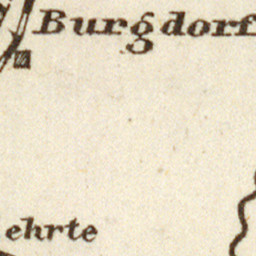 Burgdorf
ehrte